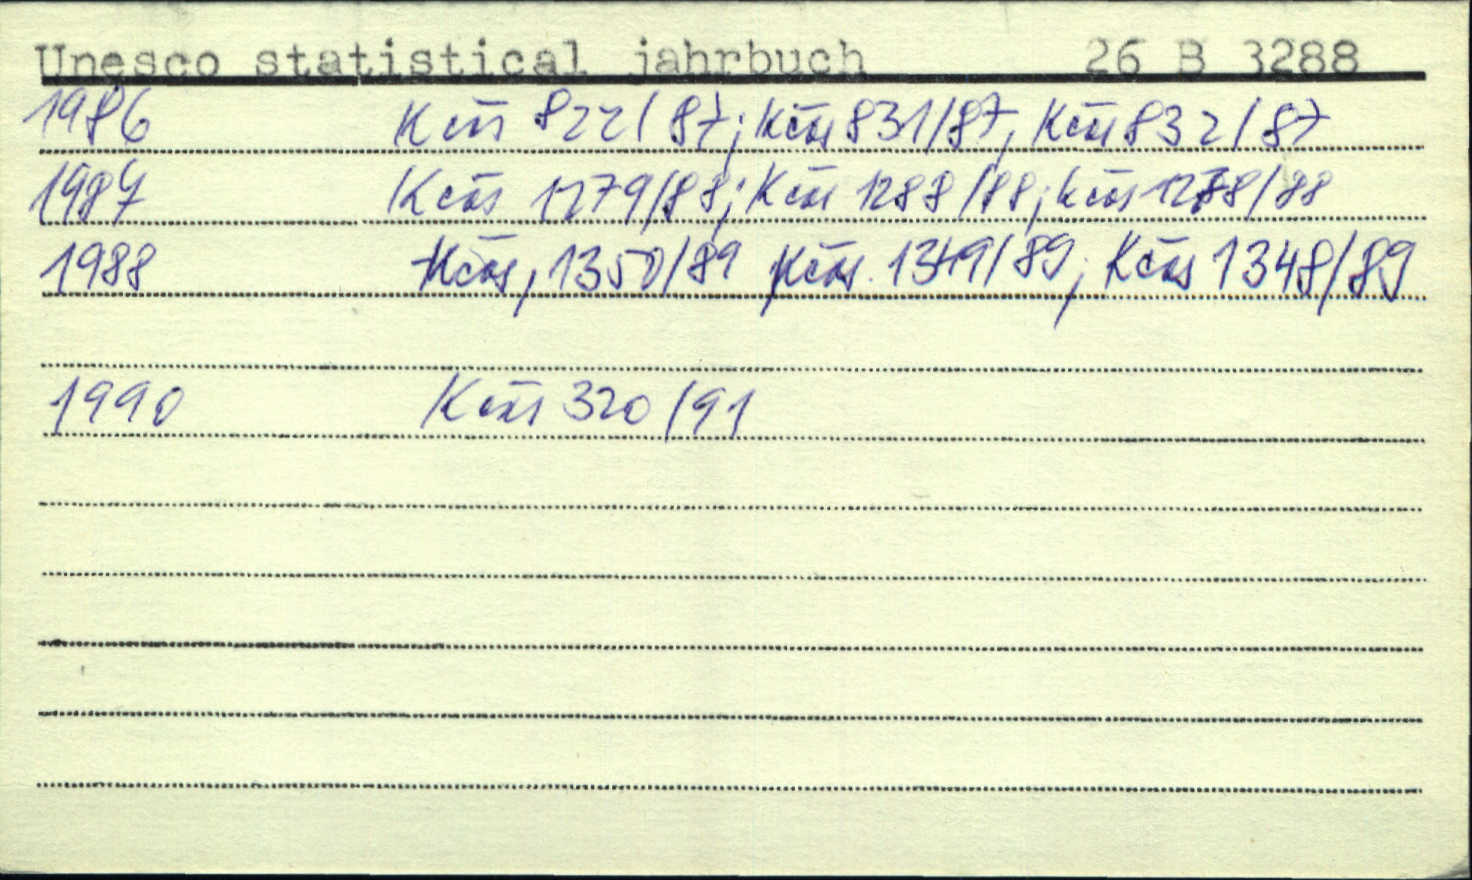 Unesco statistical jahrbuch 26 B 3288
1986 Kčs 822/87; Kčs 831/87, Kčs 832/87
1987 Kčs 1279/88; Kčs 1288/88; kčs 1288/88
1988 Kčs, 1350/89 Kčs. 1349/89, Kčs 1348/89
1990 Kčs 320/91